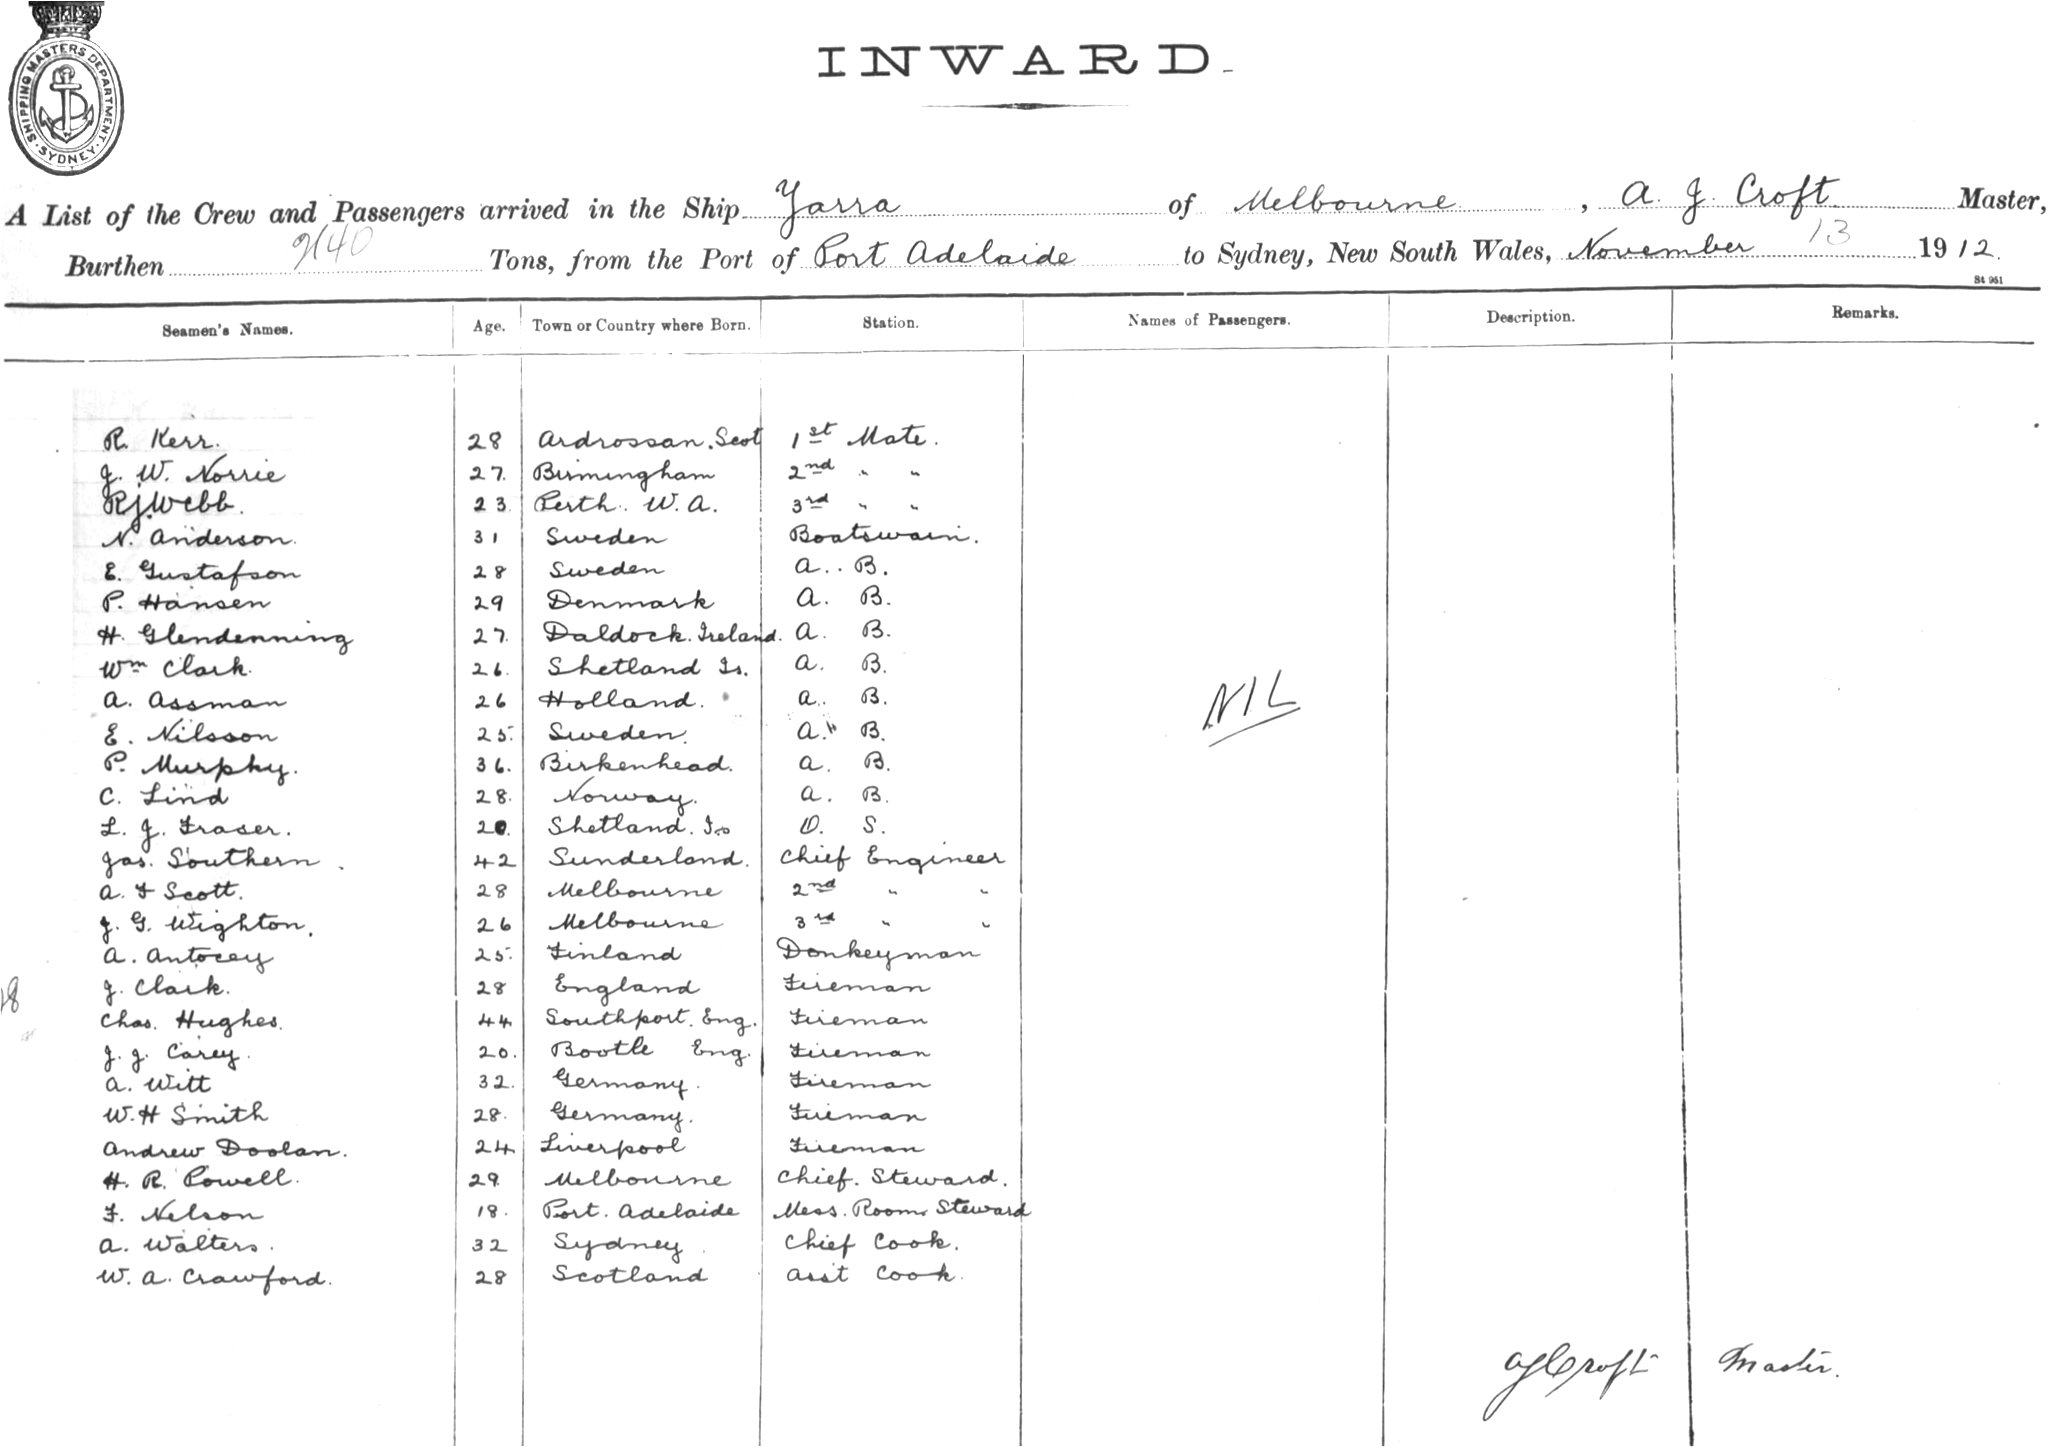 SHIPPING MASTERS DEPARTMENT
SYDNEY
INWARD.
A List of the Crew and Passengers arrived in the Ship Yarra of Melbourne, A. J. Croft Master,
Burthen 2140 Tons, from the Port of Port Adelaide to Sydney, New South Wales, November 13 1912.
St 961
Seamen's Names. Age. Town or Country where Born. Station. Names of Passengers. Description. Remarks.
R. Kerr. 28 Ardrossan. Scot 1st Mate.
J. W. Norrie 27. Birmingham 2nd " "
R.J. Webb. 23 Perth. W. A. 3rd " "
N. Anderson. 31 Sweden Boatswain.
E. Gustafson 28 Sweden A. B.
P. Hansen 29 Denmark A. B.
H. Glendenning 27. Daldock. Ireland. A. B.
Wm Clark. 26. Shetland Is. A. B.
A. Assman 26 Holland. A. B.
NIL
E. Nilsson 25. Sweden. A. B.
P. Murphy. 36. Birkenhead. A. B.
C. Lind 28. Norway. A. B.
L. J. Fraser. 20. Shetland. Is O. S.
Jas. Southern 42 Sunderland. Chief Engineer
A. F Scott. 28 Melbourne 2nd " "
J. G. Wighton. 26 Melbourne 3rd " "
A. Antocey 25. Finland Donkeyman
J. Clark. 28 England Fireman
Chas. Hughes. 44 Southport. Eng. Fireman
J. J. Carey. 20. Bootle Eng. Fireman
A. Witt 32. Germany. Fireman
W. H Smith 28. Germany. Fireman
Andrew Doolan. 24 Liverpool Fireman
H. R. Powell. 29. Melbourne Chief. Steward.
F. Nelson 18. Port. Adelaide Mess. Room Steward
A. Walters. 32 Sydney Chief Cook.
W. A. Crawford. 28 Scotland Asst Cook.
AJCroft Master.